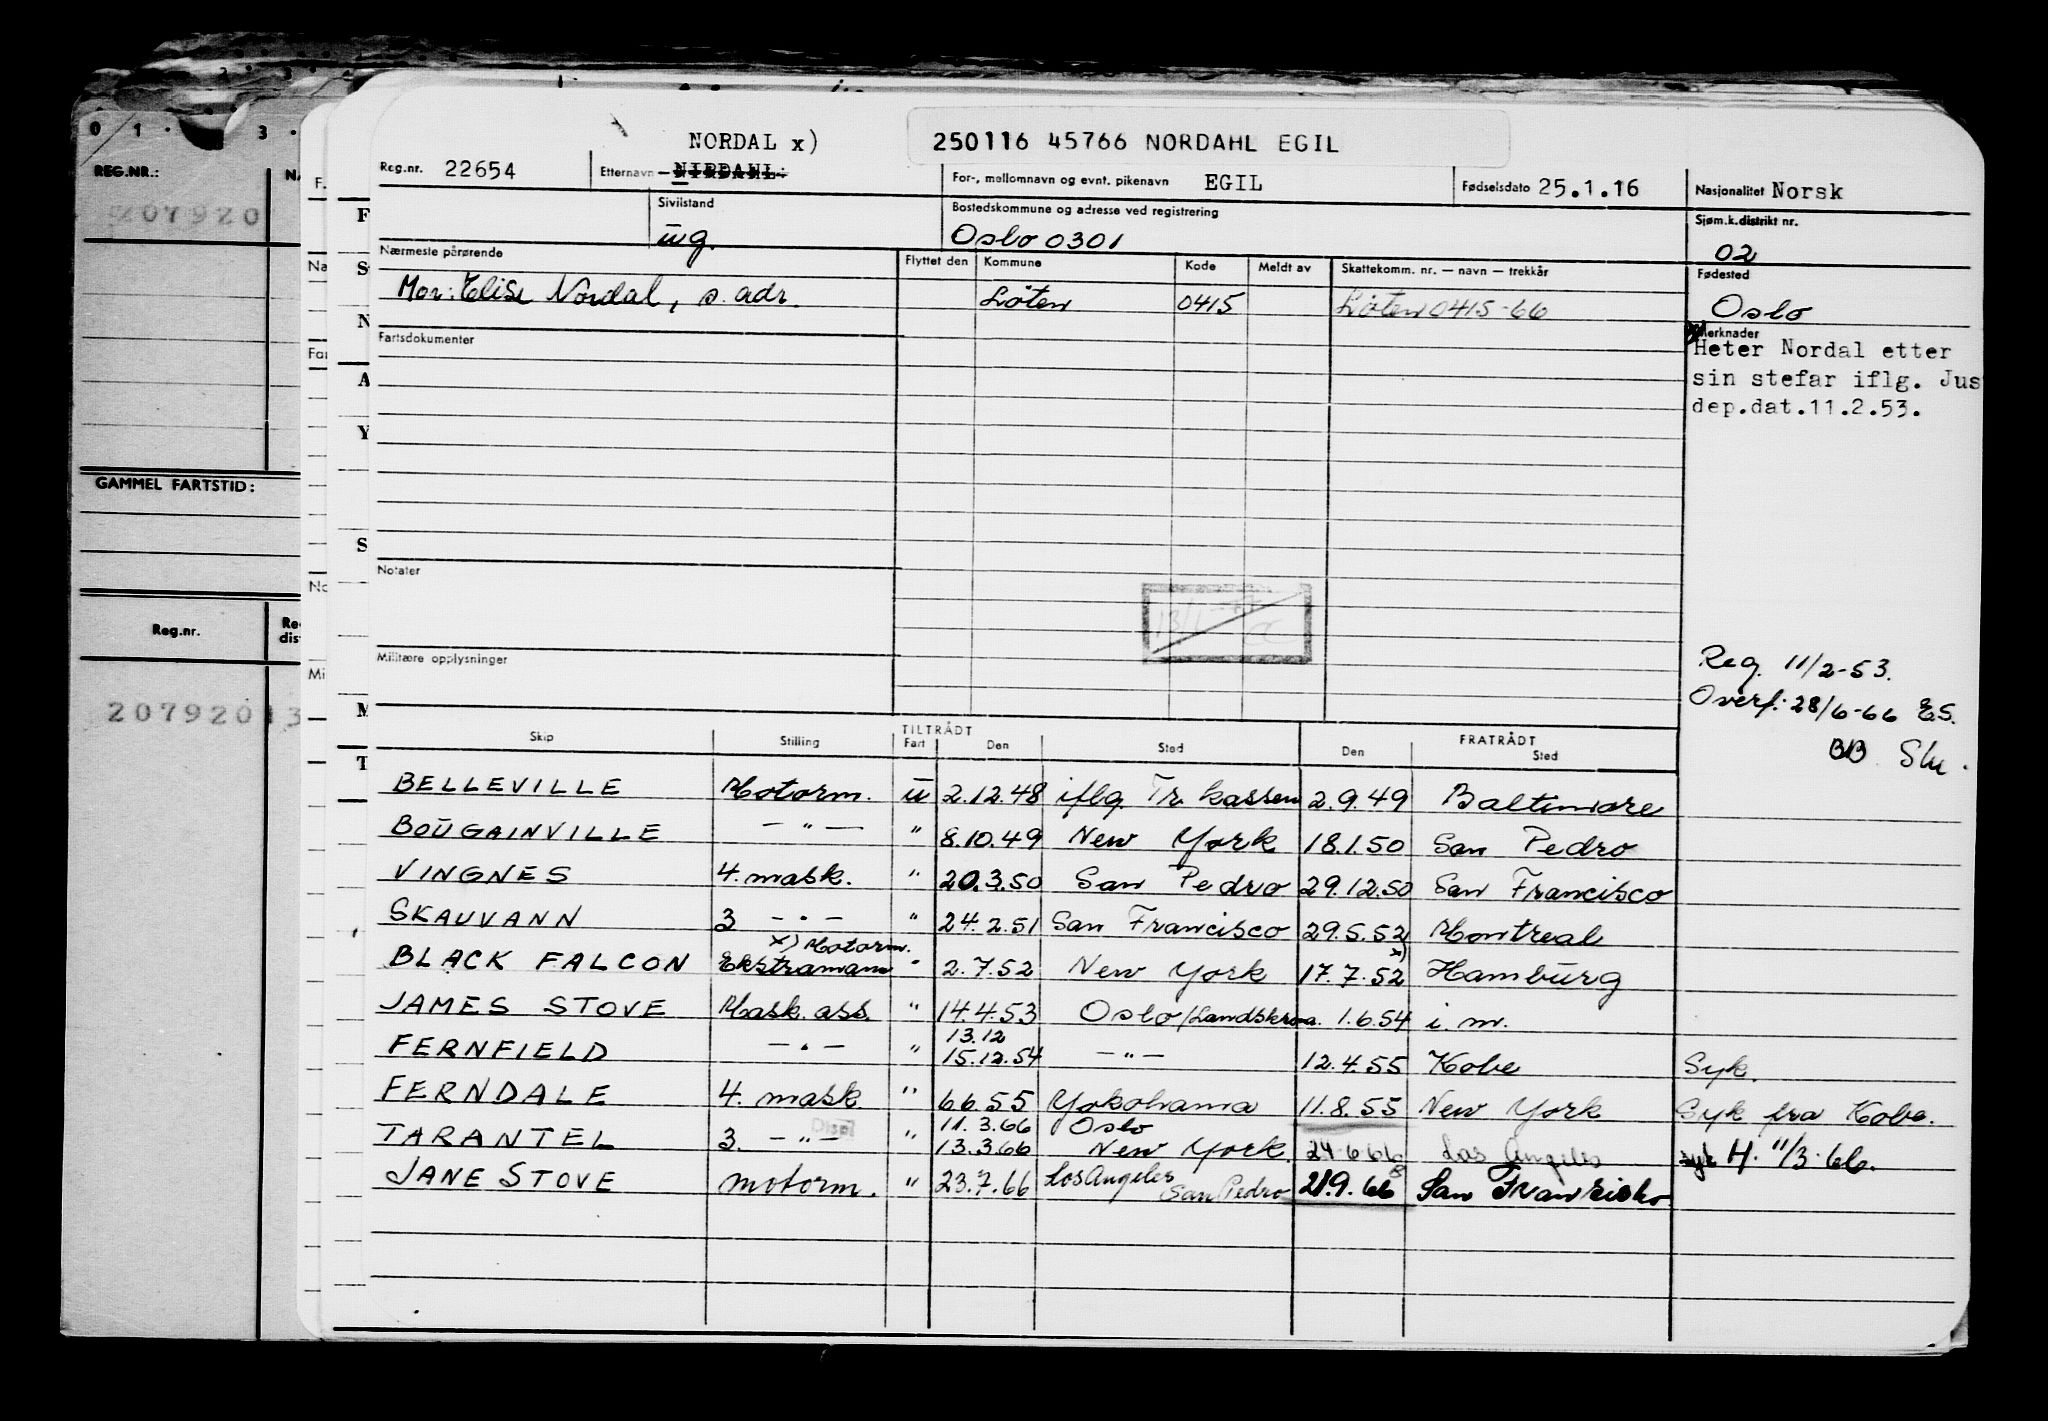 0 1 . 3 .
REG.NR.:
207920
GAMMEL FARTSTID:
Reg.nr.
207920 13
NORDAL x)
250116 45766 NORDAHL EGIL
Reg.nr. 22654
Etternavn NIRDAHL:
For-, mellomnavn og evnt. pikenavn EGIL
Fødselsdato 25.1.16
Nasjonalitet Norsk
Sivilstand
ug.
Bostedskommune og adresse ved registrering
Oslo 0301
Sjøm.k.distrikt nr.
02
Nærmeste pårørende
Mor: Elise Nordal, s. adr.
Flyttet den Kommune Kode Meldt av Skattekomm. nr. — navn — trekkår
Löten 0415 Löten 0415-66
Fødested
Oslo
Fartsdokumenter
x) Merknader
Heter Nordal etter
sin stefar iflg. Jus
dep.dat.11.2.53.
Notater
Militære opplysninger
Reg. 11/2-53.
Overf. 28/6-66 ES.
BB
Skip Stilling TILTRÅDT Fart Den Sted FRATRÅDT Den Sted
BELLEVILLE Motorm. u 2.12.48 iflg Tr. kassen 2.9.49 Baltimore
BOUGAINVILLE — " — " 8.10.49 New York 18.1.50 San Pedro
VINGNES 4. mask. " 20.3.50 San Pedro 29.12.50 San Francisco
SKAUVANN 3 — " — " 24.2.51 San Francisco 29.5.52 Montreal
x) Motorm.
BLACK FALCON Ekstramann " 2.7.52 New York 17.7.52 x) Hamburg
JAMES STOVE Mask. ass. " 14.4.53 Oslo/Landskrona. 1.6.54 i. m.
13.12
FERNFIELD — " — " 15.12.54 — " — 12.4.55 Kobe Syk.
FERNDALE 4. mask. " 6.6.55 Yokohama 11.8.55 New York Syk fra Kobe.
Disp 11.3.66 Oslo
TARANTEL 3. — " — " 13.3.66 New York. 24.6.66 Los Angeles syk H. 11/3-66.
JANE STOVE motorm. " 23.7.66 Los Angeles San Pedro 21.9.66 San Franzisko